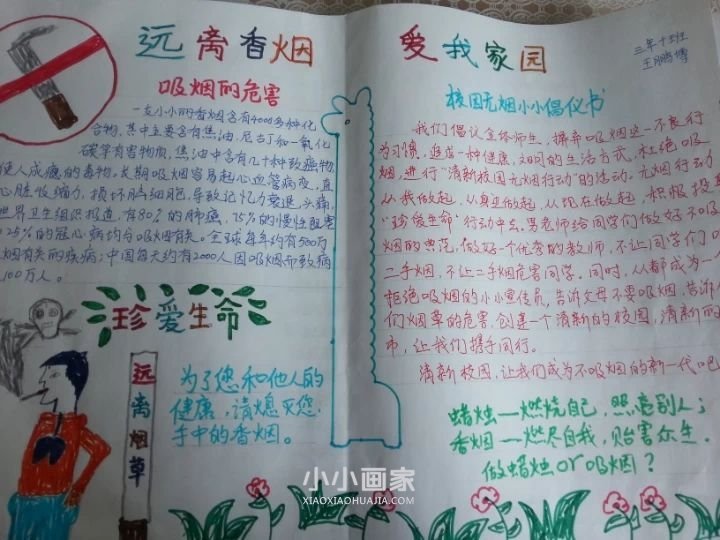 远离香烟
吸烟的危害
一支小小的香烟含有4000多种化
合物,其中主要含有焦油,尼古丁和一氧化
碳等有害物质,焦油中含有几十种致癌物,
使人成瘾的毒物,长期吸烟容易起心血管病变,直
心脏收缩力,损坏脑细胞,导致记忆力衰退,头痛,
世界卫生组织报道,有80%的肺癌,75%的慢性阻塞
25%的冠心病均与吸烟有关。全球每年约有500万
烟有关的疾病;中国每天约有2000人因吸烟而致病
100万人。
珍爱生命
远离烟草
为了您和他人的
健康,请熄灭您
手中的香烟。
爱我家园
三年十班
王鹏博
校园无烟小小倡仪书
我们倡议全体师生,摒弃吸烟这一不良行
为习惯,追求一种健康,文明的生活方式,杜绝吸
烟,进行“清新校园无烟行动”的活动,无烟行动
从我做起,从身边做起,从现在做起,积极投
“珍爱生命”行动中去,男老师给同学们做好不吸
烟的典范,做好一个优秀的教师,不让同学们
二手烟,不让二手烟危害同学。同时,从都成为一个
拒绝吸烟的小小宣传员,告诉父母不要吸烟,告诉
们烟草的危害,创建一个清新的校园,清新的
市,让我们携手同行。
清新校园,让我们成为不吸烟的新一代吧
蜡烛—燃烧自己,照亮别人;
香烟—燃尽自我,贻害众生.
做蜡烛or吸烟?
小小画家
XIAOXIAOHUAJIA.COM